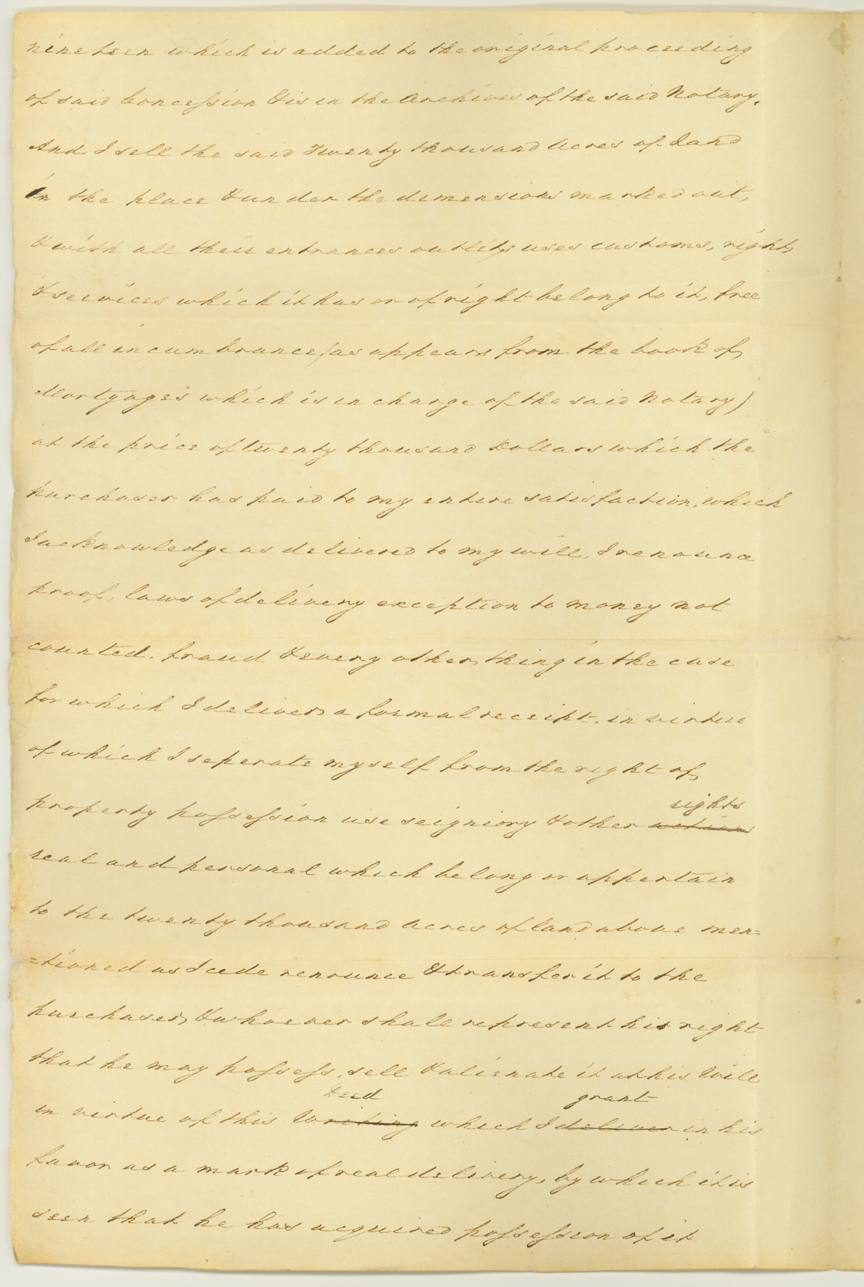 nineteen which is added to the original proceeding
of said Concession & is in the Archives of the said Notary.
And I sell the said Twenty thousand Acres of Land
in the place & under the dimensions marked out,
& with all their entrances outlets uses customs, rights
& services which it has or of right belong to it, free
of all incumbrance (as appears from the book of
Mortgages which is in charge of the said Notary)
at the price of twenty thousand Dollars which the
purchaser has paid to my entire satisfaction, which
I acknowledge as delivered to my will, I renounce
proof, laws of delivery exception to money not
counted. fraud & every other thing in the case
for which I deliver a formal receipt. in virtue
of which I seperate myself from the right of
property possession use seigniory & other actions
rights
real and personal which belong or appertain
to the twenty thousand acres of land above men=
=tioned as I cede renounce & transfer it to the
purchaser, & whoever shall represent his right
that he may possess, sell & alienate it at his Will
Deed grant
in virtue of this Writing which I deliver in his
favor as a mark of real delivery, by which it is
seen that he has acquired possession of it